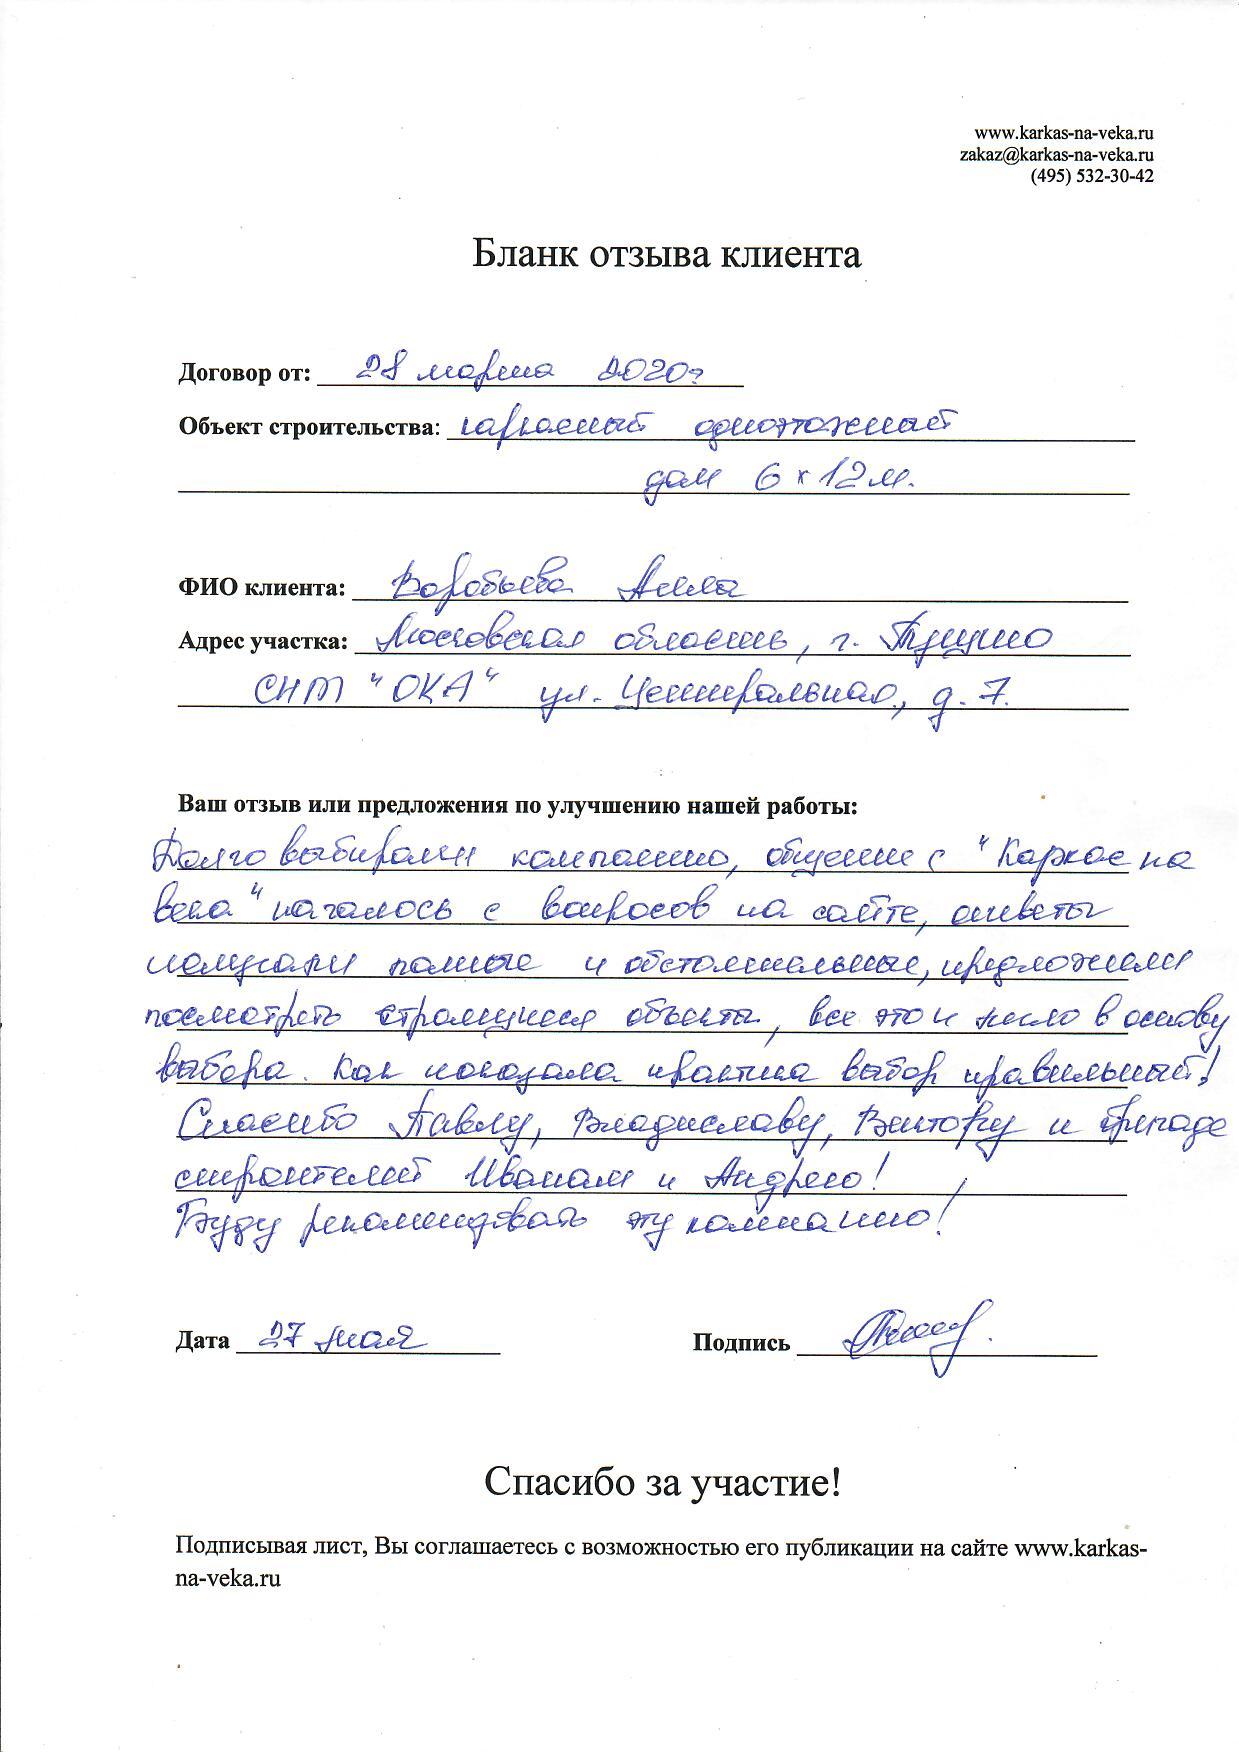 www.karkas-na-veka.ru
zakaz@karkas-na-veka.ru
(495) 532-30-42
Бланк отзыва клиента
Договор от: 28 марта 2020г
Объект строительства: каркасный одноэтажный
дом 6 х 12 м.
ФИО клиента: Воробьева Алла
Адрес участка: Московская область, г. Пущино
СНТ "ОКА" ул. Центральная, д. 7.
Ваш отзыв или предложения по улучшению нашей работы:
Долго выбирали компанию, общение с "Каркас на
века" началось с вопросов на сайте, ответы
получали полные и обстоятельные, предложили
посмотреть строящиеся объекты, все это и легло в основу
выбора. Как показала практика выбор правильный!
Спасибо Павлу, Владиславу, Виктору и бригаде
строителей Иванам и Андрею!
Буду рекомендовать эту компанию!
Дата 27 мая Подпись
Спасибо за участие!
Подписывая лист, Вы соглашаетесь с возможностью его публикации на сайте www.karkas-
na-veka.ru